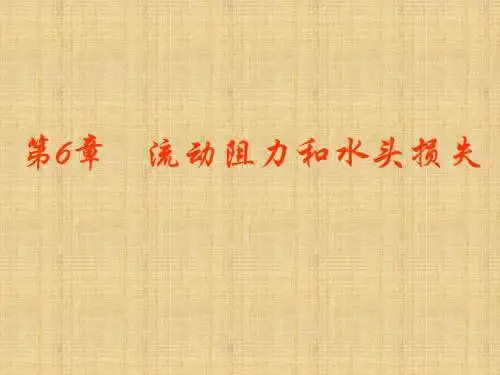 第6章 流动阻力和水头损失